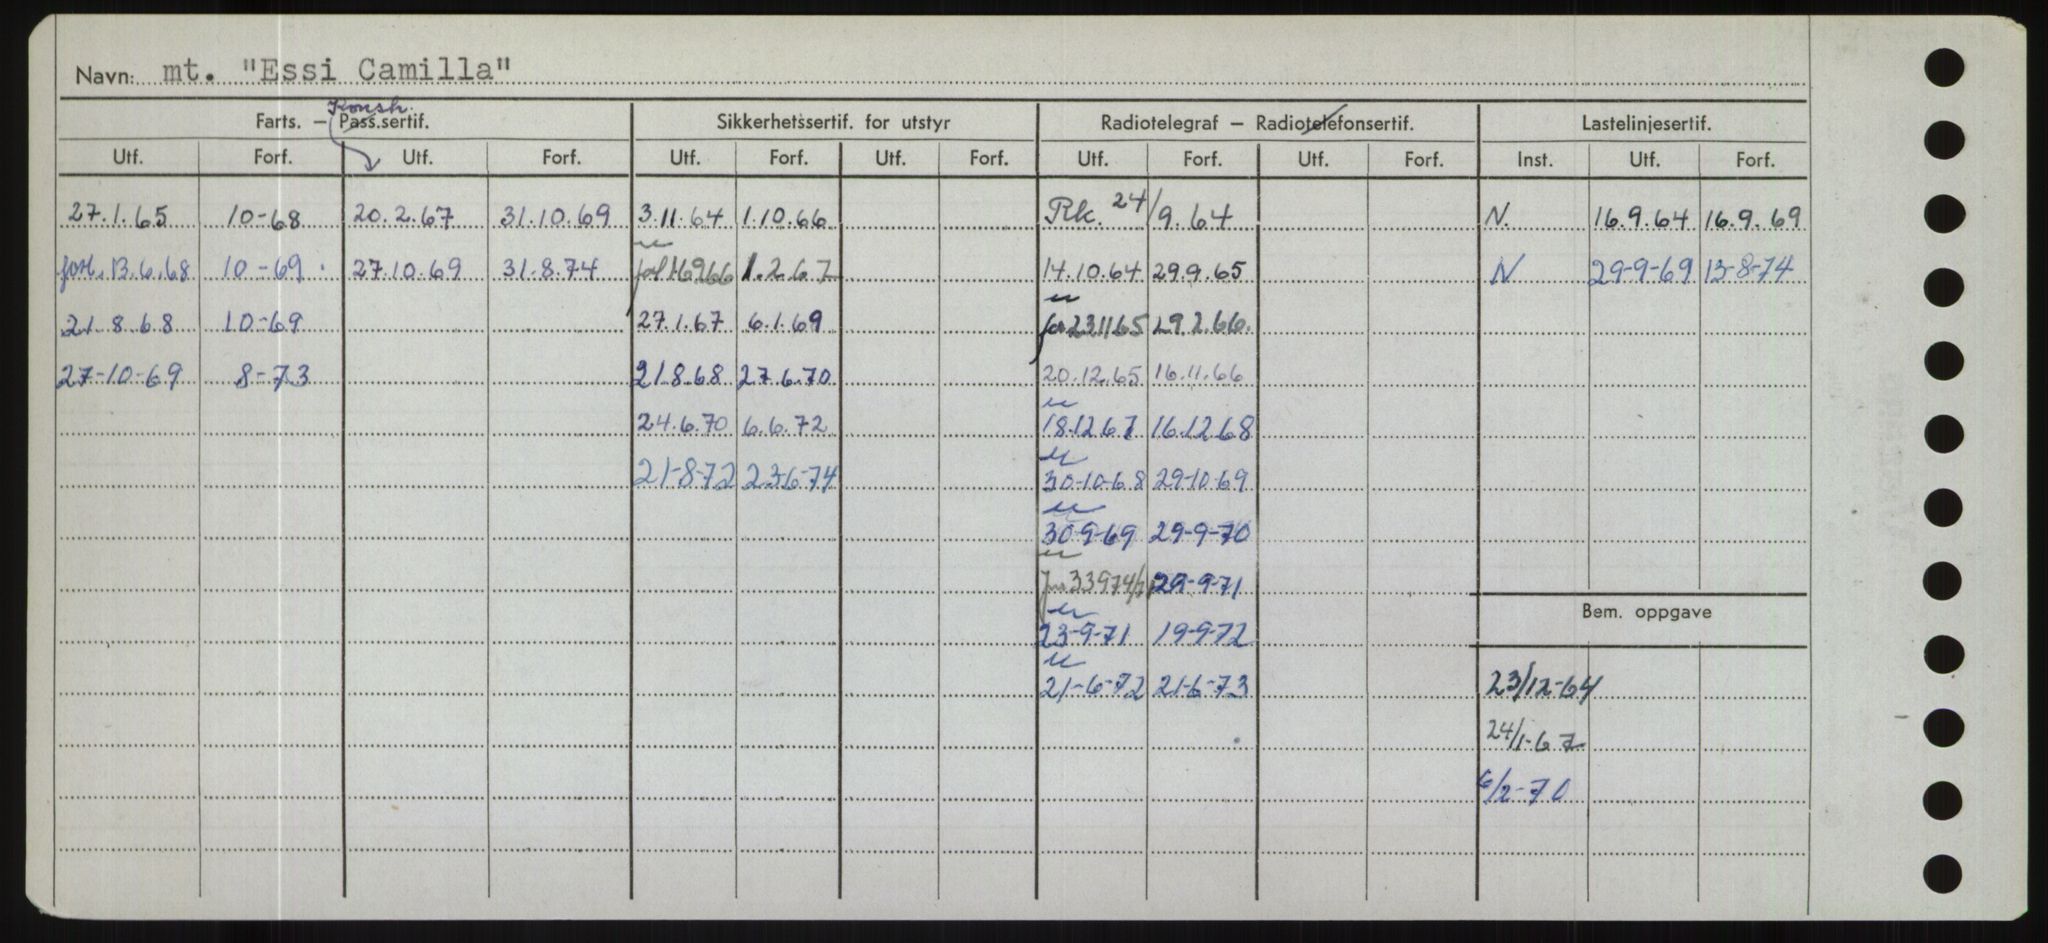 Navn: mt. "Essi Camilla"
Konsh.
Farts. — Pass.sertif. Sikkerhetssertif. for utstyr Radiotelegraf — Radiotelefonsertif. Lastelinjesertif.
Utf. Forf. Utf. Forf. Utf. Forf. Utf. Forf. Utf. Forf. Utf. Forf. Inst. Utf. Forf.
27.1.65 10-68 20.2.67 31.10.69 3.11.64 1.10.66 Rk. 24/9.64 N. 16.9.64 16.9.69
forl. 13.6.68 10-69 27.10.69 31.8.74 1.2.67 14.10.64 29.9.65 N 29-9-69 13-8-74
21.8.68 10-69 27.1.67 6.1.69 23.11.65 29.2.66.
27-10-69 8-73 21.8.68 27.6.70 20.12.65 16.11.66
24.6.70 6.6.72 18.12.67 16.12.68
21-8-72 23-6-74 30-10-68 29-10-69
30-9-69 29-9-70
29-9-71
Bem. oppgave
23-9-71 19-9-72
21-6-72 21-6-73 23/12-64
24/1-67
6/2-70